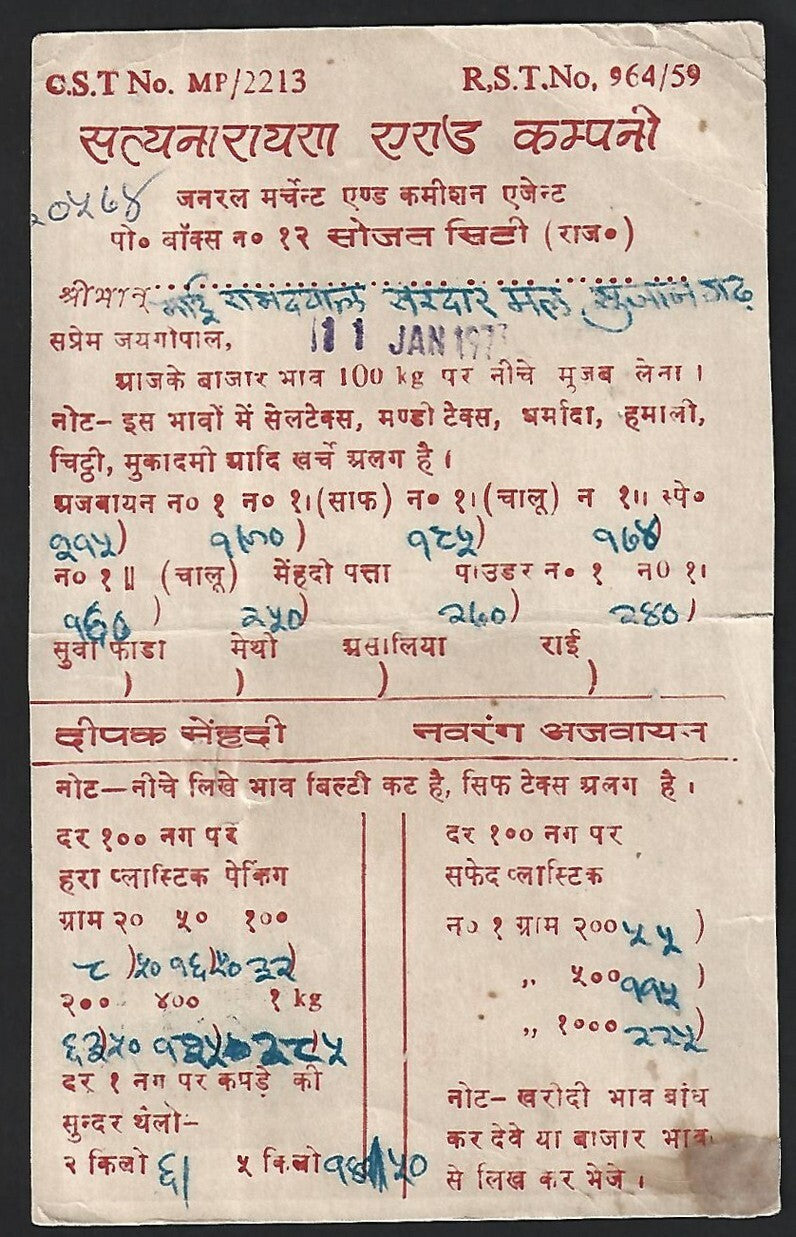 C.S.T No. MP/2213 R,S.T.No, 964/59
सत्यनारायण एण्ड कम्पनी
२०५७४ जनरल मर्चेन्ट एण्ड कमीशन एजेन्ट
पो० बॉक्स न० १२ सोजत सिटी (राज०)
श्रीमान् रामदयाल सरदार मल सुजानगढ़
सप्रेम जयगोपाल, 11 JAN 197
आजके बाजार भाव 100 kg पर नीचे मुजब लेना ।
नोट- इस भावों में सेलटेक्स, मण्डी टेक्स, धर्मादा, हमाली,
चिट्ठी, मुकादमी आदि खर्चे अलग है ।
अजबायन न० १ न० १।(साफ) न० १।(चालू) न १॥ स्पे०
२१५) १९५) १७४
न० १॥ (चालू) मेंहदी पत्ता पाउडर न० १ न० १।
) २५०) २६०) २४०)
सुवा फाडा मेथी असालिया राई
) ) ) )
दीपक मेंहदी नवरंग अजवायन
नोट—नीचे लिखे भाव बिल्टी कट है, सिफ टेक्स अलग है ।
दर १०० नग पर
हरा प्लास्टिक पेकिंग
ग्राम २० ५० १००
८)५० १६)५० ३२)
२०० ४०० १ kg
६२)५० २८५
दर १ नग पर कपड़े की
सुन्दर थेली-
२ किलो ६) ५ किलो
दर १०० नग पर
सफेद प्लास्टिक
न० १ ग्राम २०० ५५ )
,, ५०० ११५ )
,, १००० २२५)
नोट- खरीदी भाव बांध
कर देवे या बाजार भाव
से लिख कर भेजे ।